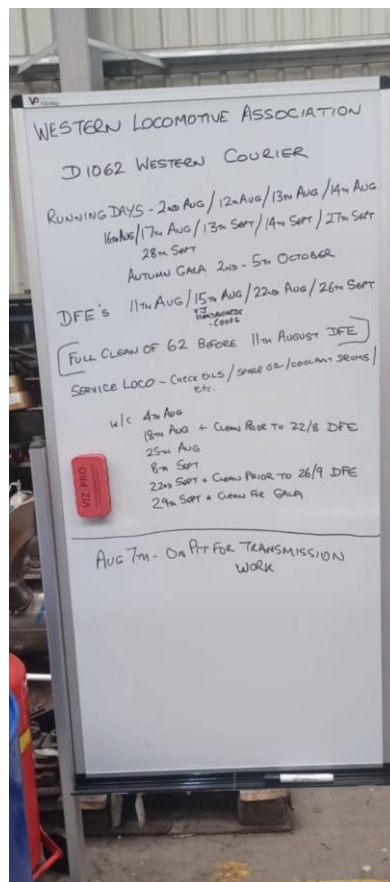 WESTERN LOCOMOTIVE ASSOCIATION
D1062 WESTERN COURIER
RUNNING DAYS - 2ND AUG / 12TH AUG / 13TH AUG / 14TH AUG
16TH AUG / 17TH AUG / 13TH SEPT / 14TH SEPT / 27TH SEPT
28TH SEPT
AUTUMN GALA 2ND - 5TH OCTOBER
DFE'S 11TH AUG / 15TH AUG / 22ND AUG / 26TH SEPT
VJ
COOPS
FULL CLEAN OF 62 BEFORE 11TH AUGUST DFE
SERVICE LOCO - CHECK OILS / SPARE OIL / COOLANT DRUMS /
etc.
W/C 4TH AUG
18TH AUG + CLEAN PRIOR TO 22/8 DFE
25TH AUG
8TH SEPT
22ND SEPT + CLEAN PRIOR TO 26/9 DFE
29TH SEPT + CLEAN FOR GALA
VIZ-PRO
AUG 7TH - ON PIT FOR TRANSMISSION
WORK